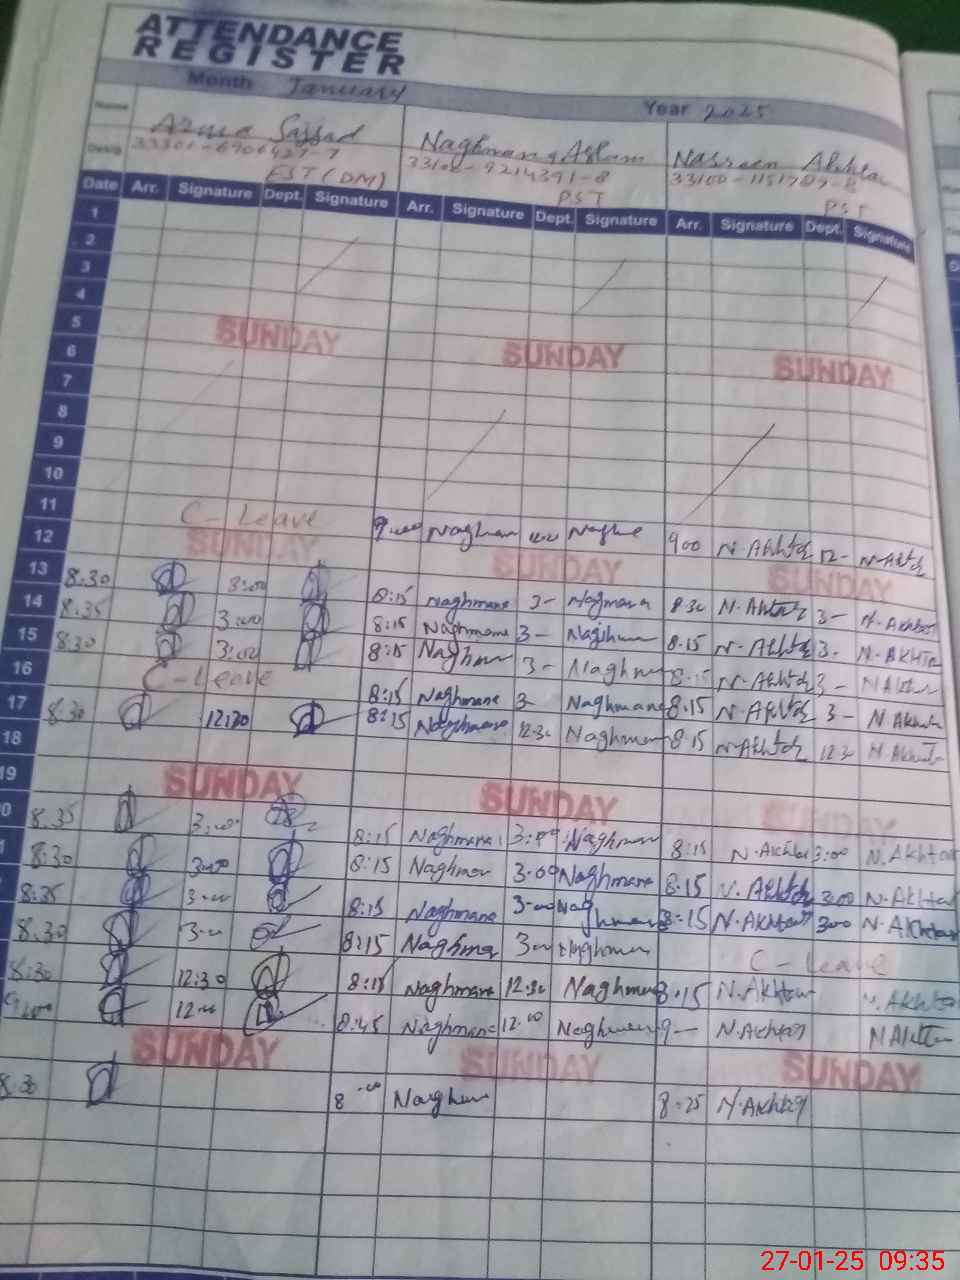 ATTENDANCE
REGISTER
Month January Year 2025
Name Sajjad Naghmana Aslam Nasreen Akhtar
Desig
EST (DM) PST PST
Date Arr. Signature Dept. Signature Arr. Signature Dept. Signature Arr. Signature Dept. Signature
1
2
3
4
5 SUNDAY SUNDAY SUNDAY
6
7
8
9
10
11 C-Leave 9:00 Naghman Naghe 900 N-Akhtar 12- N-Akhtar
12 SUNDAY SUNDAY SUNDAY
13 8.30 3:00 8:15 Naghmana 3- Naghmana 8.30 N-Akhtar 3- N-Akhtar
14 8.35 3:00 8:15 Naghmana 3- Naghmana 8.15 N-Akhtar 3- N-AKHTar
15 8.30 3:00 8:15 Naghmana 3- Naghmana 8.15 N-Akhtar 3- N Akhtar
16 C-Leave 8:15 Naghmana 3- Naghmana 8.15 N-Akhtar 3- N Akhtar
17 8.30 12:30 8:15 Naghmana 12.30 Naghmana 8.15 N-Akhtar 12.30 N Akhtar
18
19 SUNDAY SUNDAY SUNDAY
8.35 3:00 8:15 Naghmana 3:00 Naghmana 8:15 N.Akhtar 3:00 N.Akhtar
8.30 3:00 8:15 Naghmana 3.00 Naghmana 8.15 N.Akhtar 3.00 N-Akhtar
8.35 3:00 8:15 Naghmana 3:00 Naghmana 8:15 N.AKhtar 300 N-AKhtar
8.30 3:00 8:15 Naghma 300 Naghmana C-Leave
8:30 12:30 8:15 Naghmana 12.30 Naghmana 8.15 N.AKHtar N.AKHtar
9:00 12:00 8:45 Naghmana 12.00 Naghmana 9- N.Akhtar N Akhtar
SUNDAY SUNDAY SUNDAY
8.30 8:00 Naghma 8.25 N.Akhtar
27-01-25 09:35